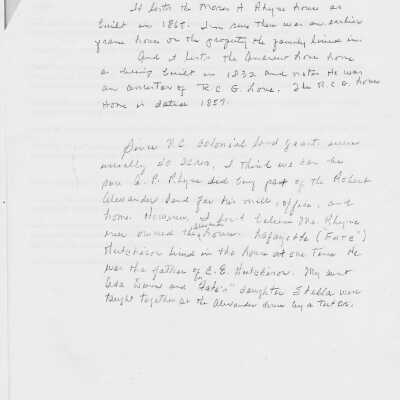 It lists the Moses H. Rhyne house as
built in 1865. I'm sure there was an earlier
frame house on the property the family lived in.
And it lists the Andrew Hone home
as being built in 1832 and notes He was
an ancestor of R.C.G. Hone. The R.C.G. House
Home is dated 1857.
Since N.C. Colonial land grants were
usually 50 acres, I think we can be
sure A. P. Rhyne did buy part of the Robert
Alexander land for his mill, office, and
home. However, I don't believe Mr. Rhyne
ever owned the Alexander house. Lafayette ("Fate")
Hutchison lived in the house at one time. He
was the father of C. E. Hutchison. My aunt
Ada and "Fate's" daughter Stella were
taught together at the Alexander home by a tutor.